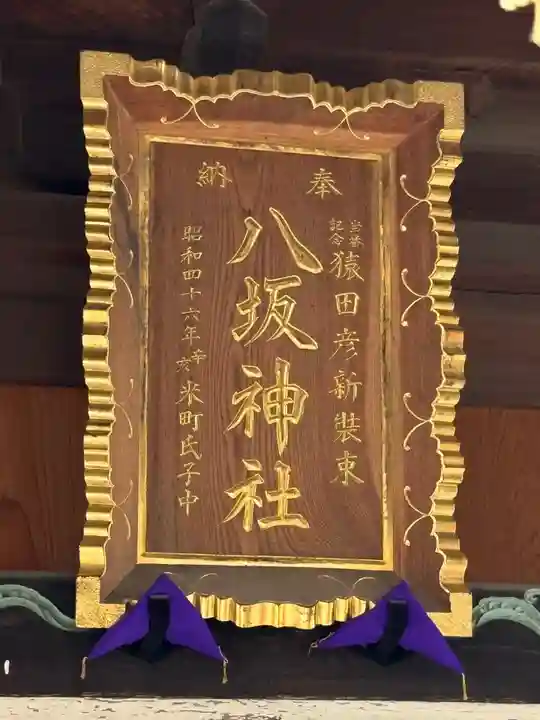 奉納
当番記念 猿田彦新装束
八坂神社
昭和四十六年辛亥 米町氏子中